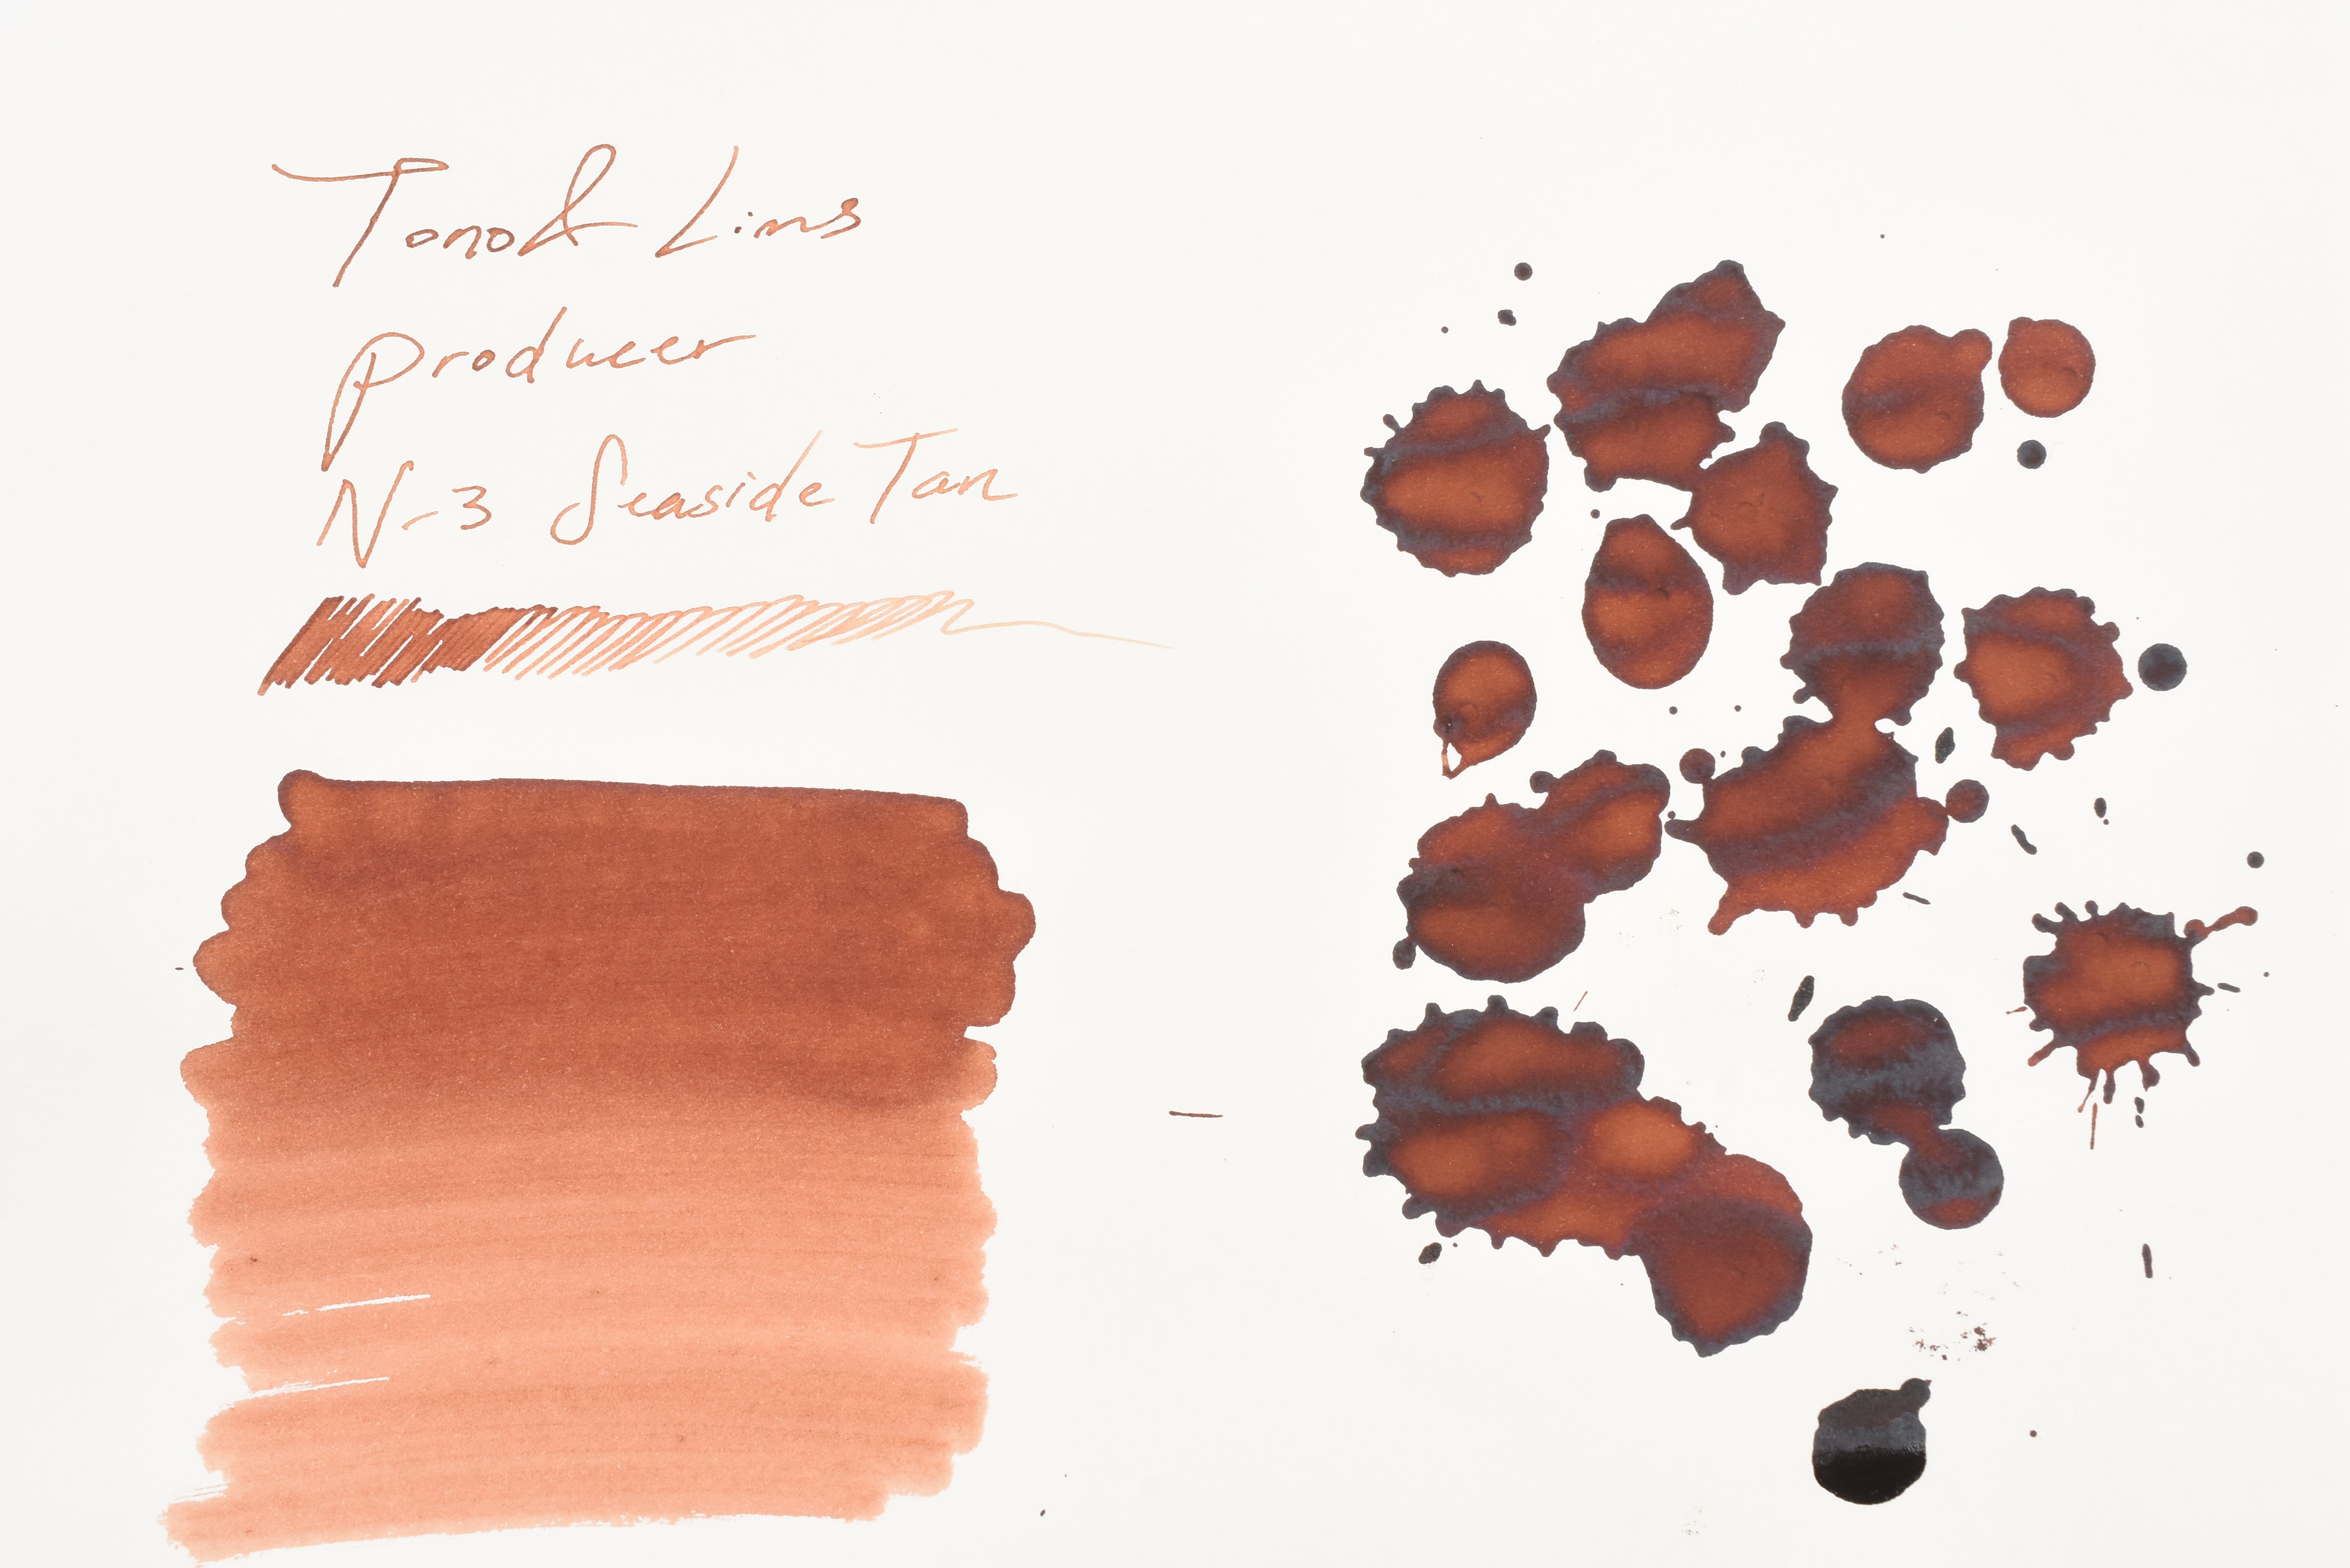 Tono& Lims
Producer
N-3 Seaside Tan